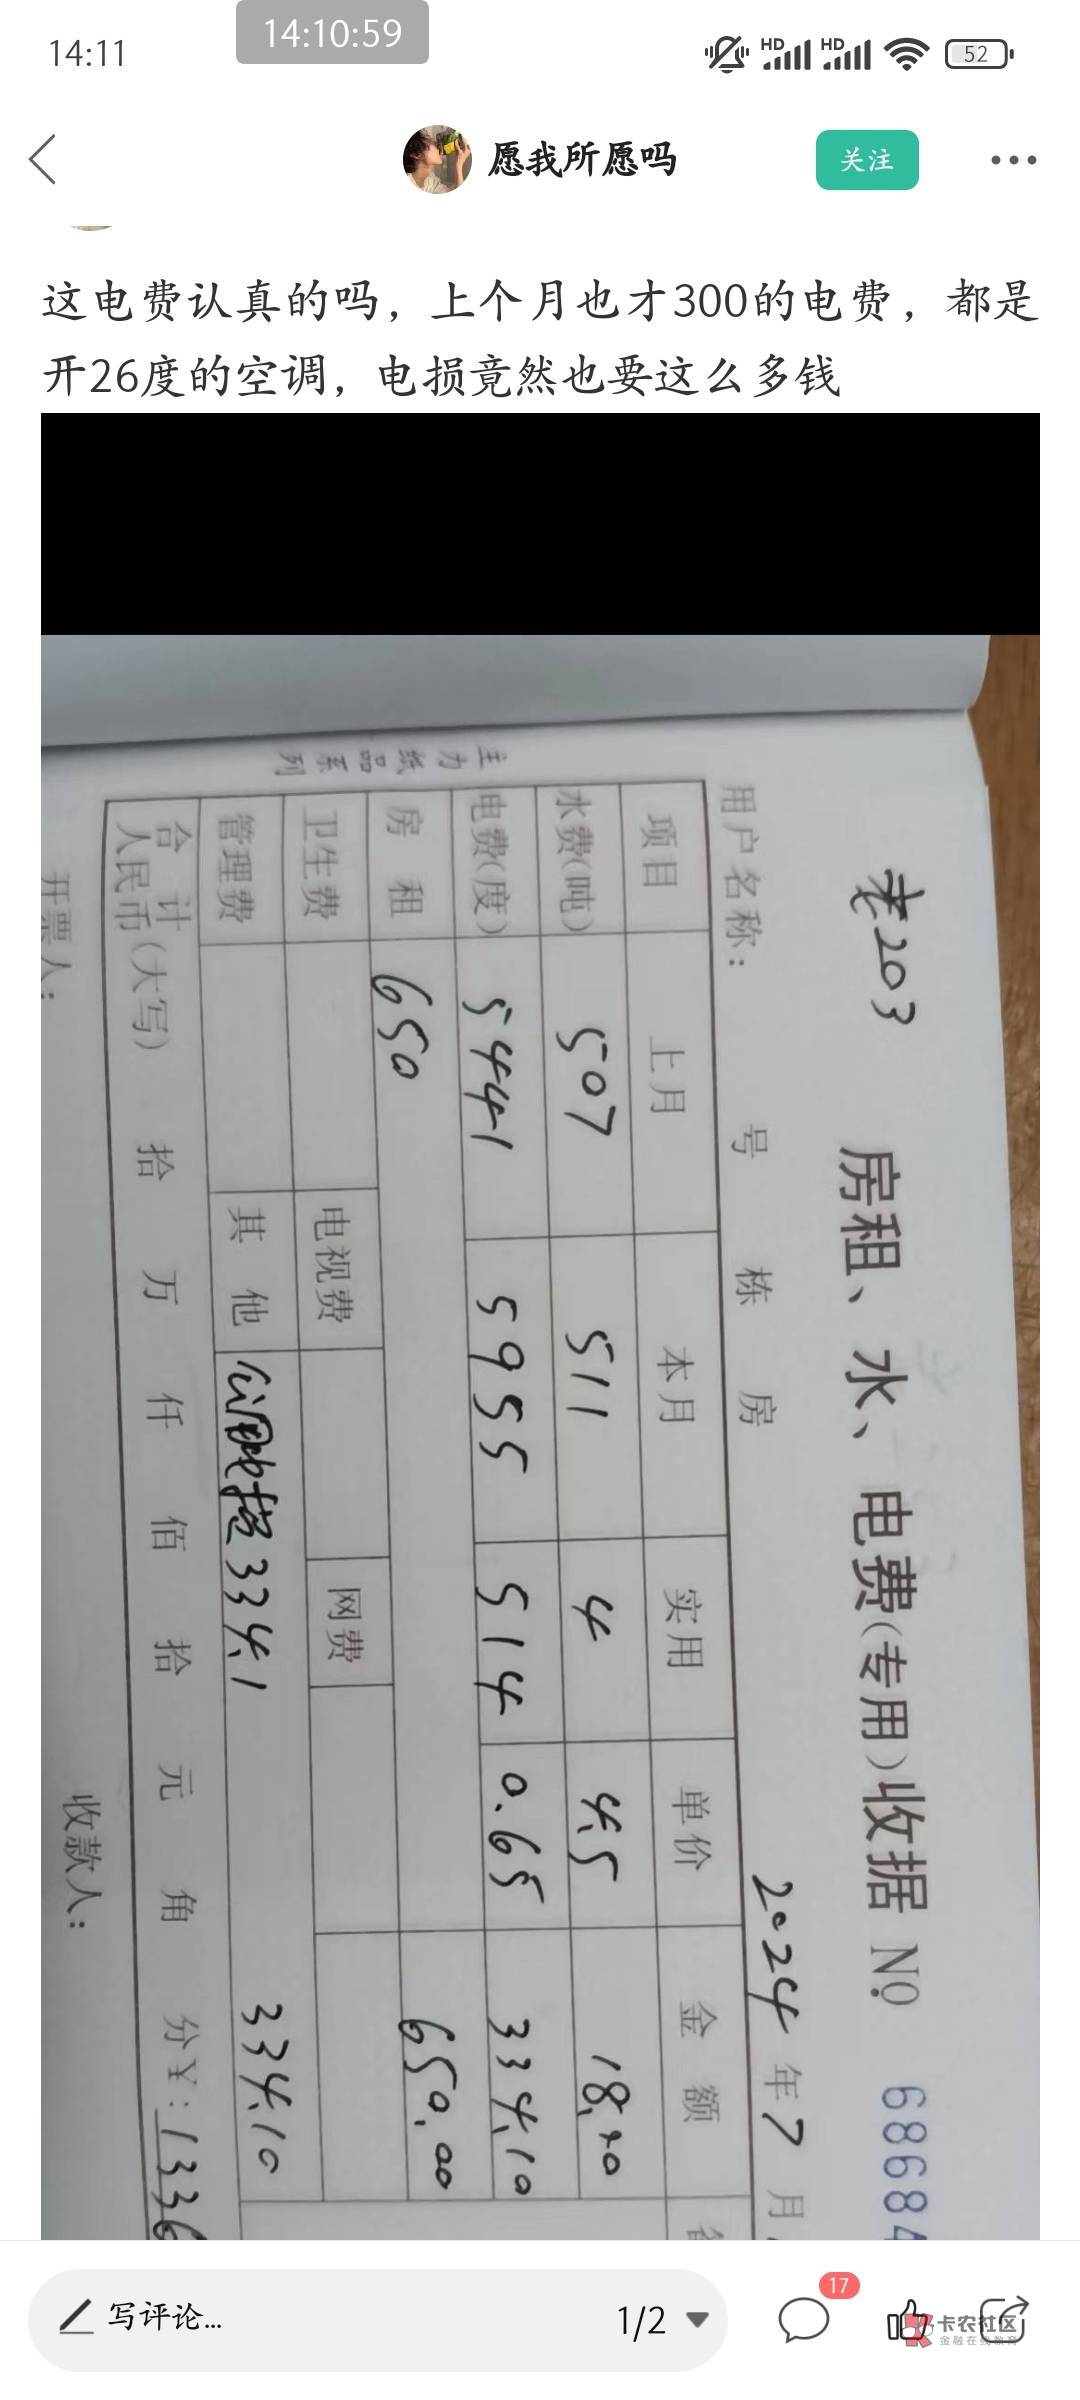 14:11
14:10:59
HD HD 52
愿我所愿吗
关注
这电费认真的吗，上个月也才300的电费，都是
开26度的空调，电损竟然也要这么多钱
老203
房租、水、电费(专用)收据 № 68684
用户名称： 号 栋 房 2024 年 7 月
项目 上月 本月 实用 单价 金额
水费(吨) 507 511 4 4.5 18.00
电费(度) 5441 5955 514 0.65 334.10
房租 650 650.00
卫生费 电视费 网费
管理费 其他 334.1 334.10
合计
人民币(大写) 拾 万 仟 佰 拾 元 角 分¥: 1336
开票人： 收款人：
主力纸品系列
写评论...
1/2
17
卡农社区
金融在线教育